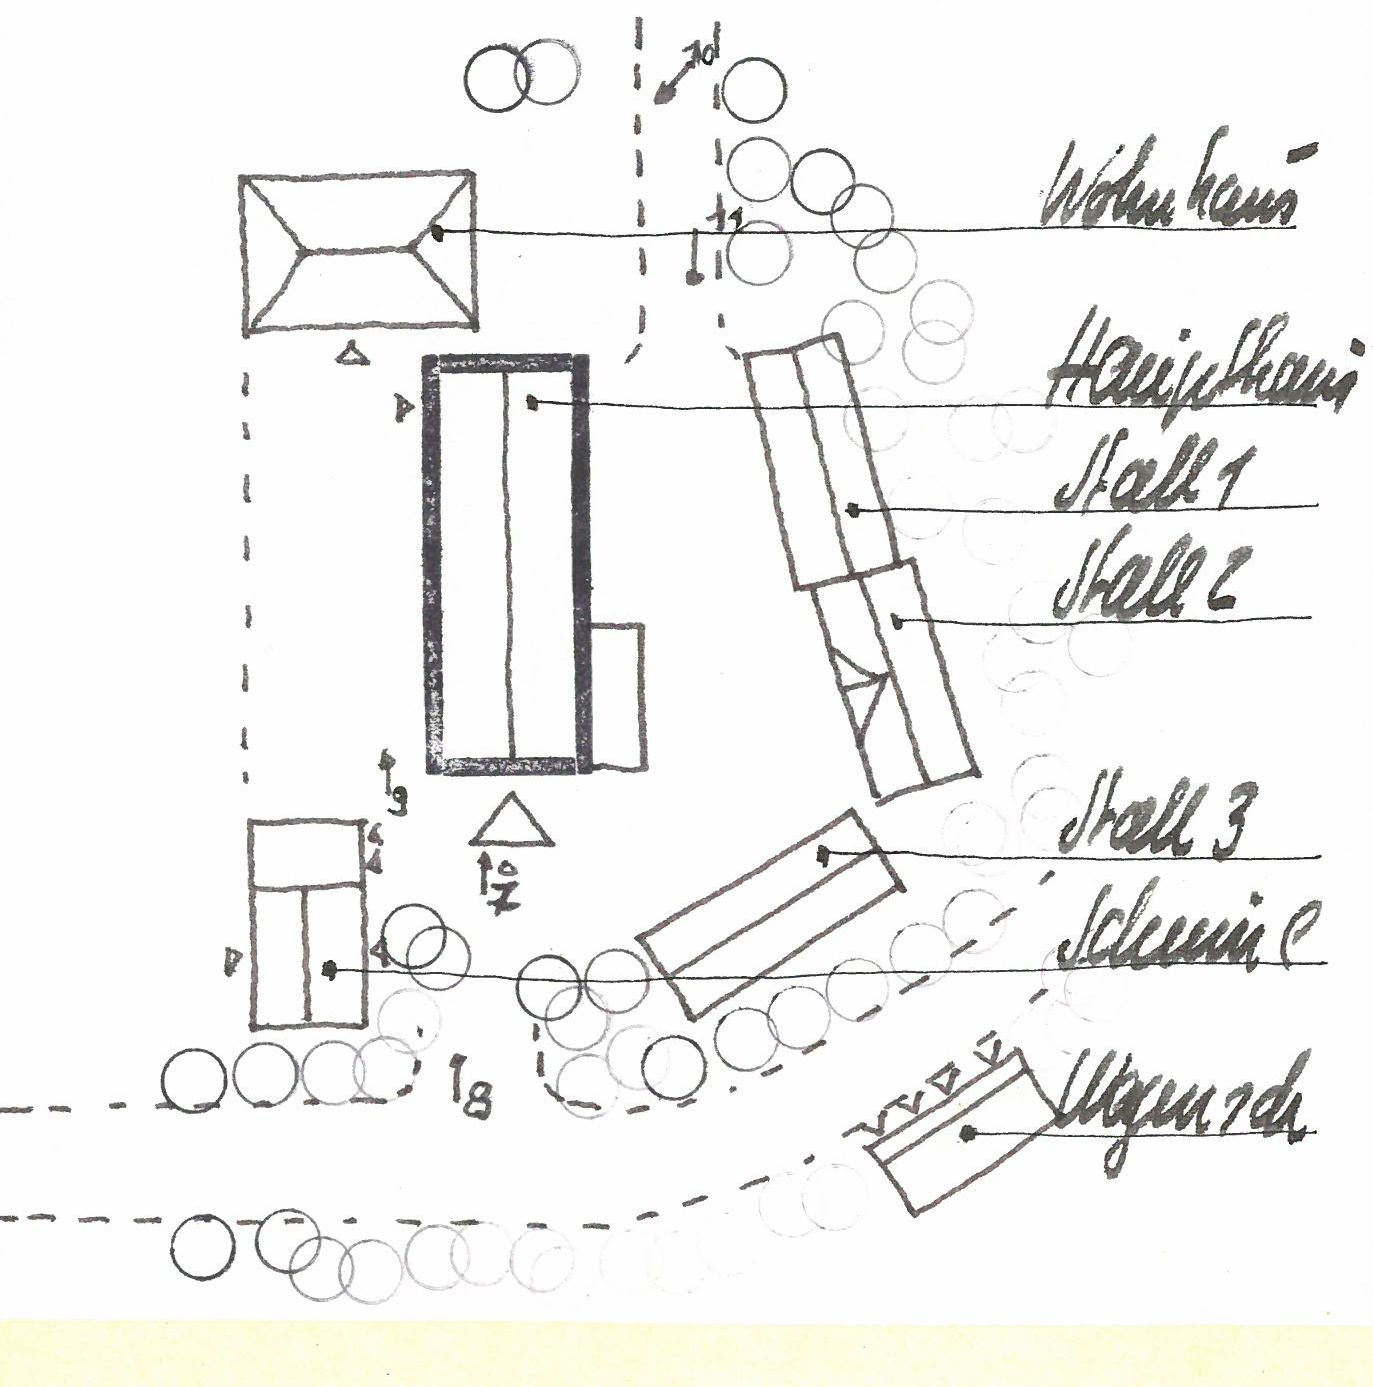 10
Wohnhaus
11
Haupthaus
Stall 1
Stall 2
9
Stall 3
7
Scheune
8
Wagensch